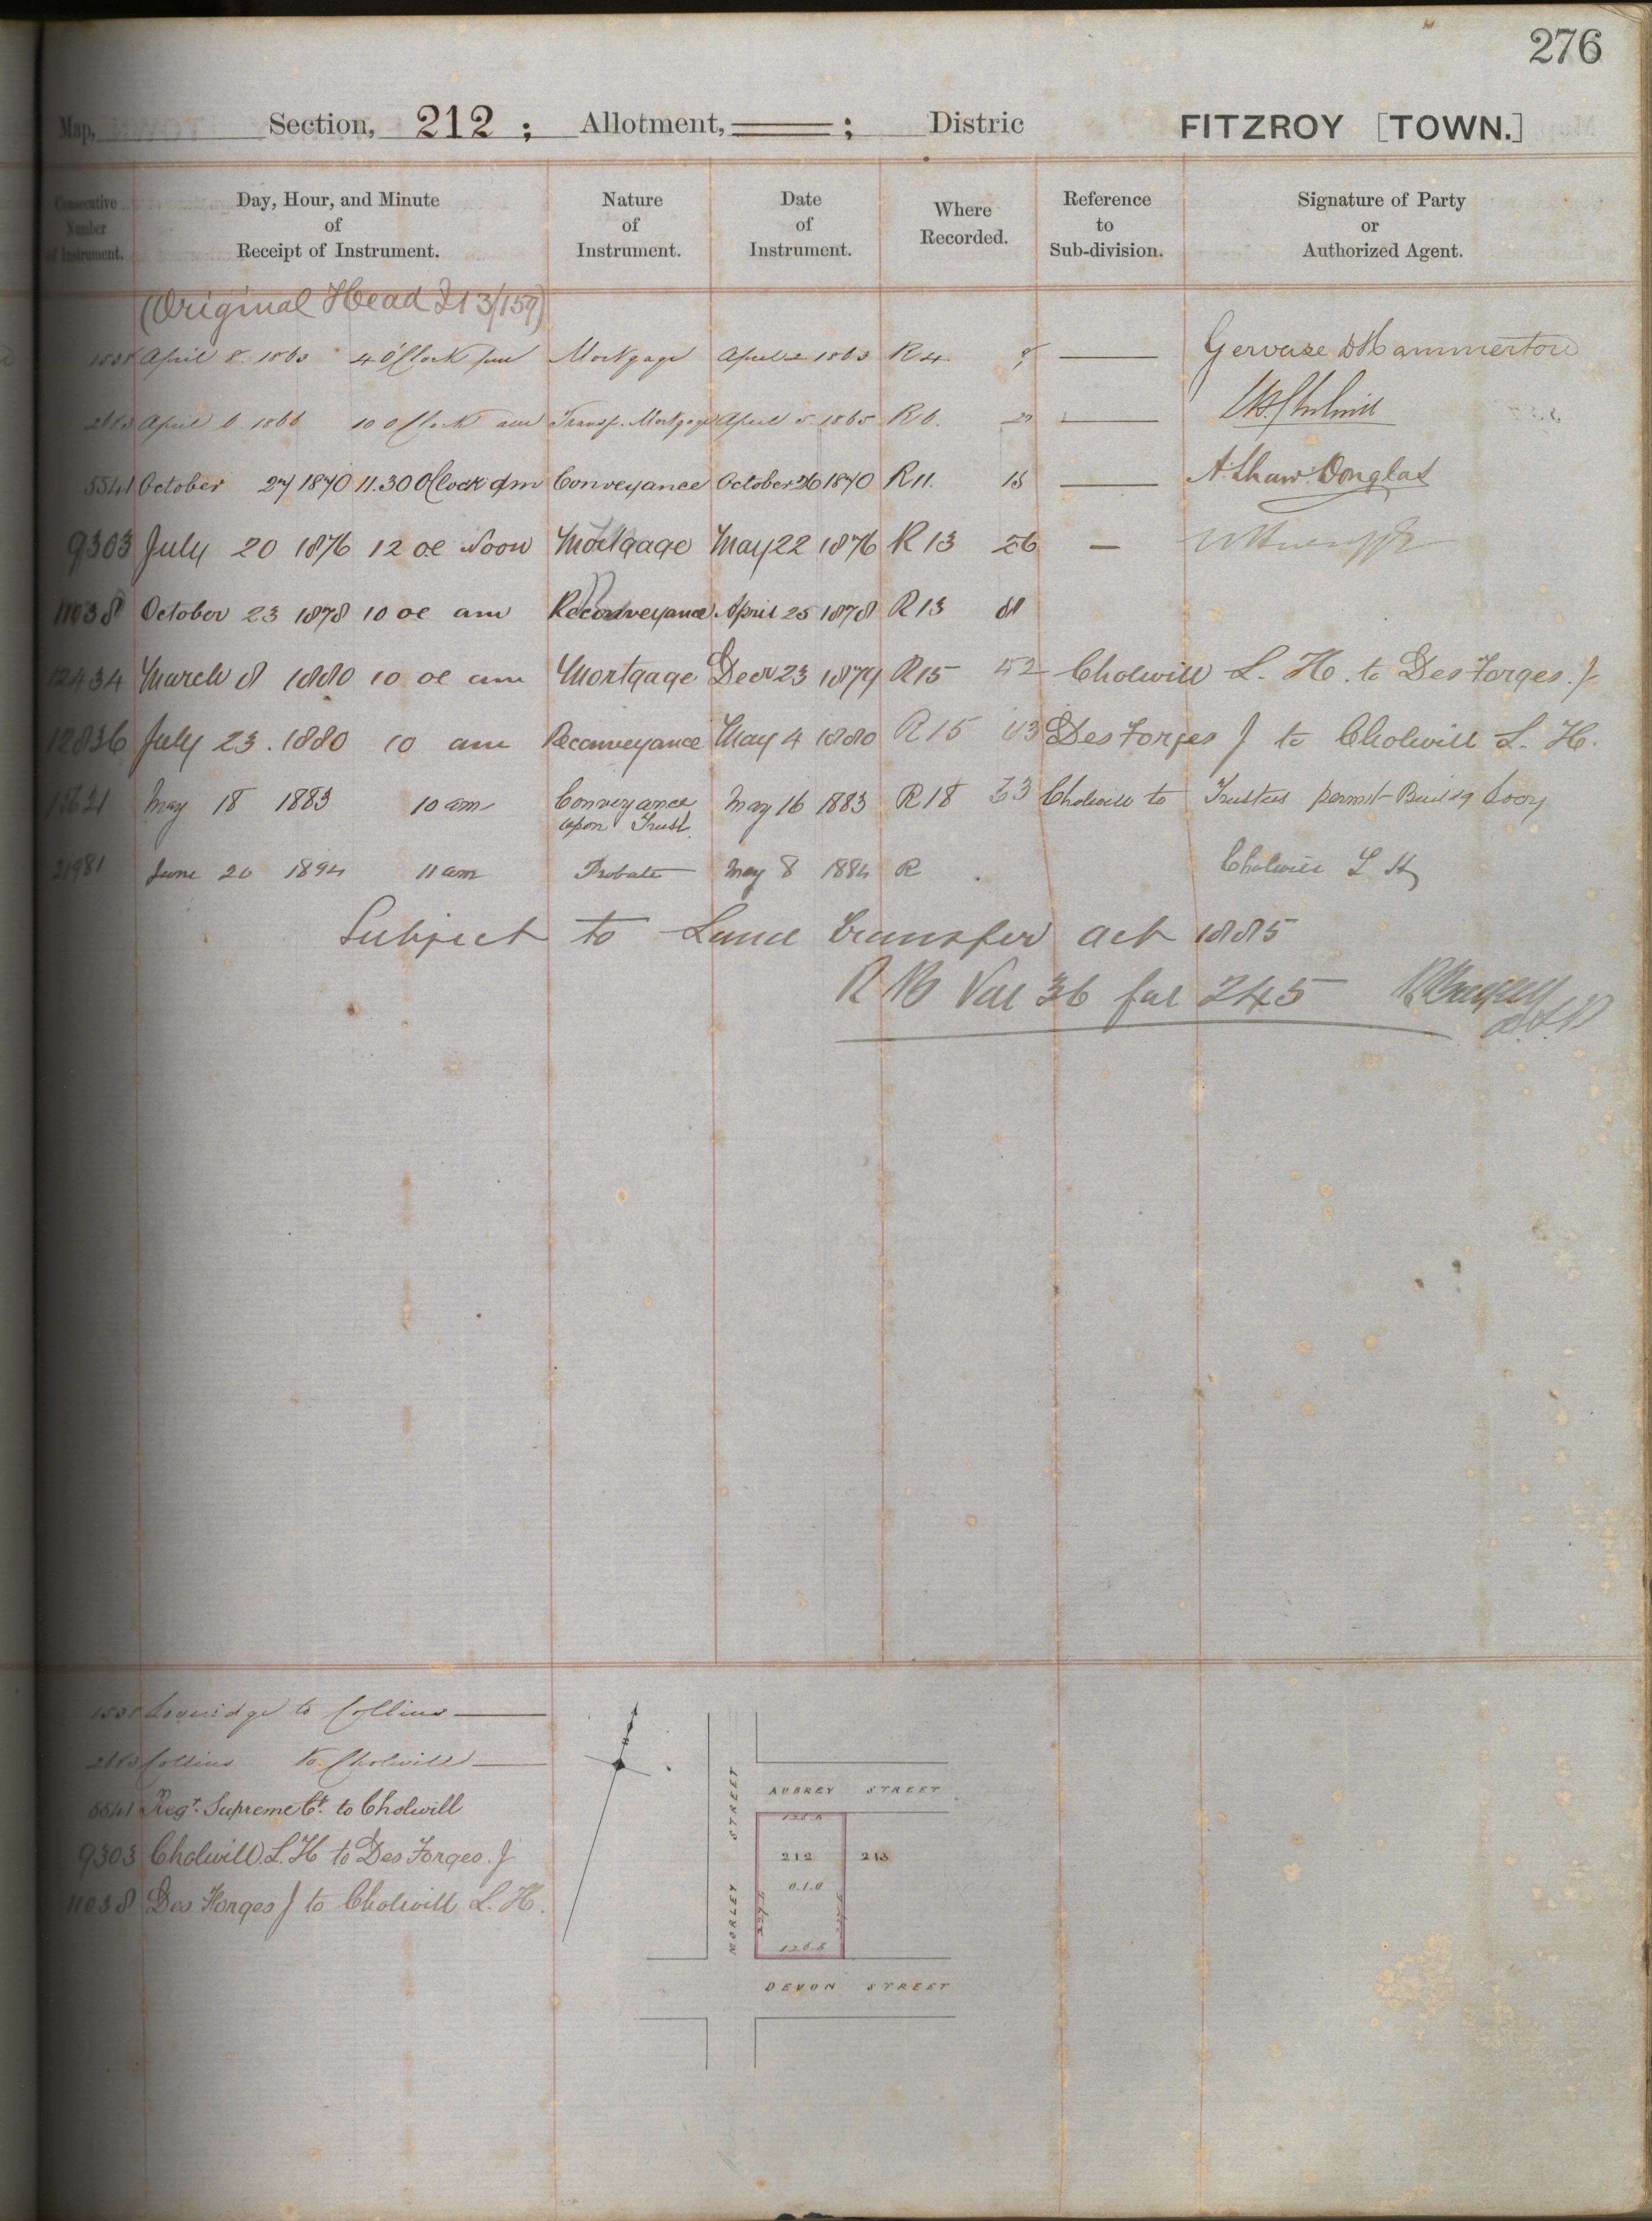 276
Map, Section, 212 ; Allotment, ; Distric FITZROY [TOWN.]
Consecutive Number of Instrument.
Day, Hour, and Minute of Receipt of Instrument.
Nature of Instrument.
Date of Instrument.
Where Recorded.
Reference to Sub-division.
Signature of Party or Authorized Agent.
(Original Head 213/159)
1538 April 8. 1863 4 O'Clock pm Mortgage April 2 1863 R 4. Gervase D Hammerton
April 6 1866 10 O'Clock am Transf. Mortgage April 5 1865 R 6.
5541 October 27 1870 11.30 O'Clock am Conveyance October 26 1870 R 11. 15 A. Shaw Douglas
9303 July 20 1876 12 oc Noon Mortgage May 22 1876 R 13 26 —
11038 October 23 1878 10 oc am Reconveyance April 25 1878 R 13
12434 March 8 1880 10 oc am Mortgage Decr 23 1879 R 15 52 Cholwill L. H. to Des Forges. J
12836 July 23. 1880 10 am Reconveyance May 4 1880 R 15 Des Forges J to Cholwill L. H.
15621 May 18 1883 10 am Conveyance upon Trust. May 16 1883 R 18 33 Cholwill to Trustees permt Building Socy
21981 June 20 1894 11 am Probate May 8 1884 R Cholwill L H
Subject to Land Transfer act 1885
R B Vol 36 fol 245
1538 to Collins
Collins to Cholwill
5541 Regr. Supreme Ct. to Cholwill
9303 Cholwill. L. H to Des Forges. J
11038 Des Forges J to Cholwill L. H.
AUBREY STREET
MORLEY STREET
212
213
0.1.0
DEVON STREET